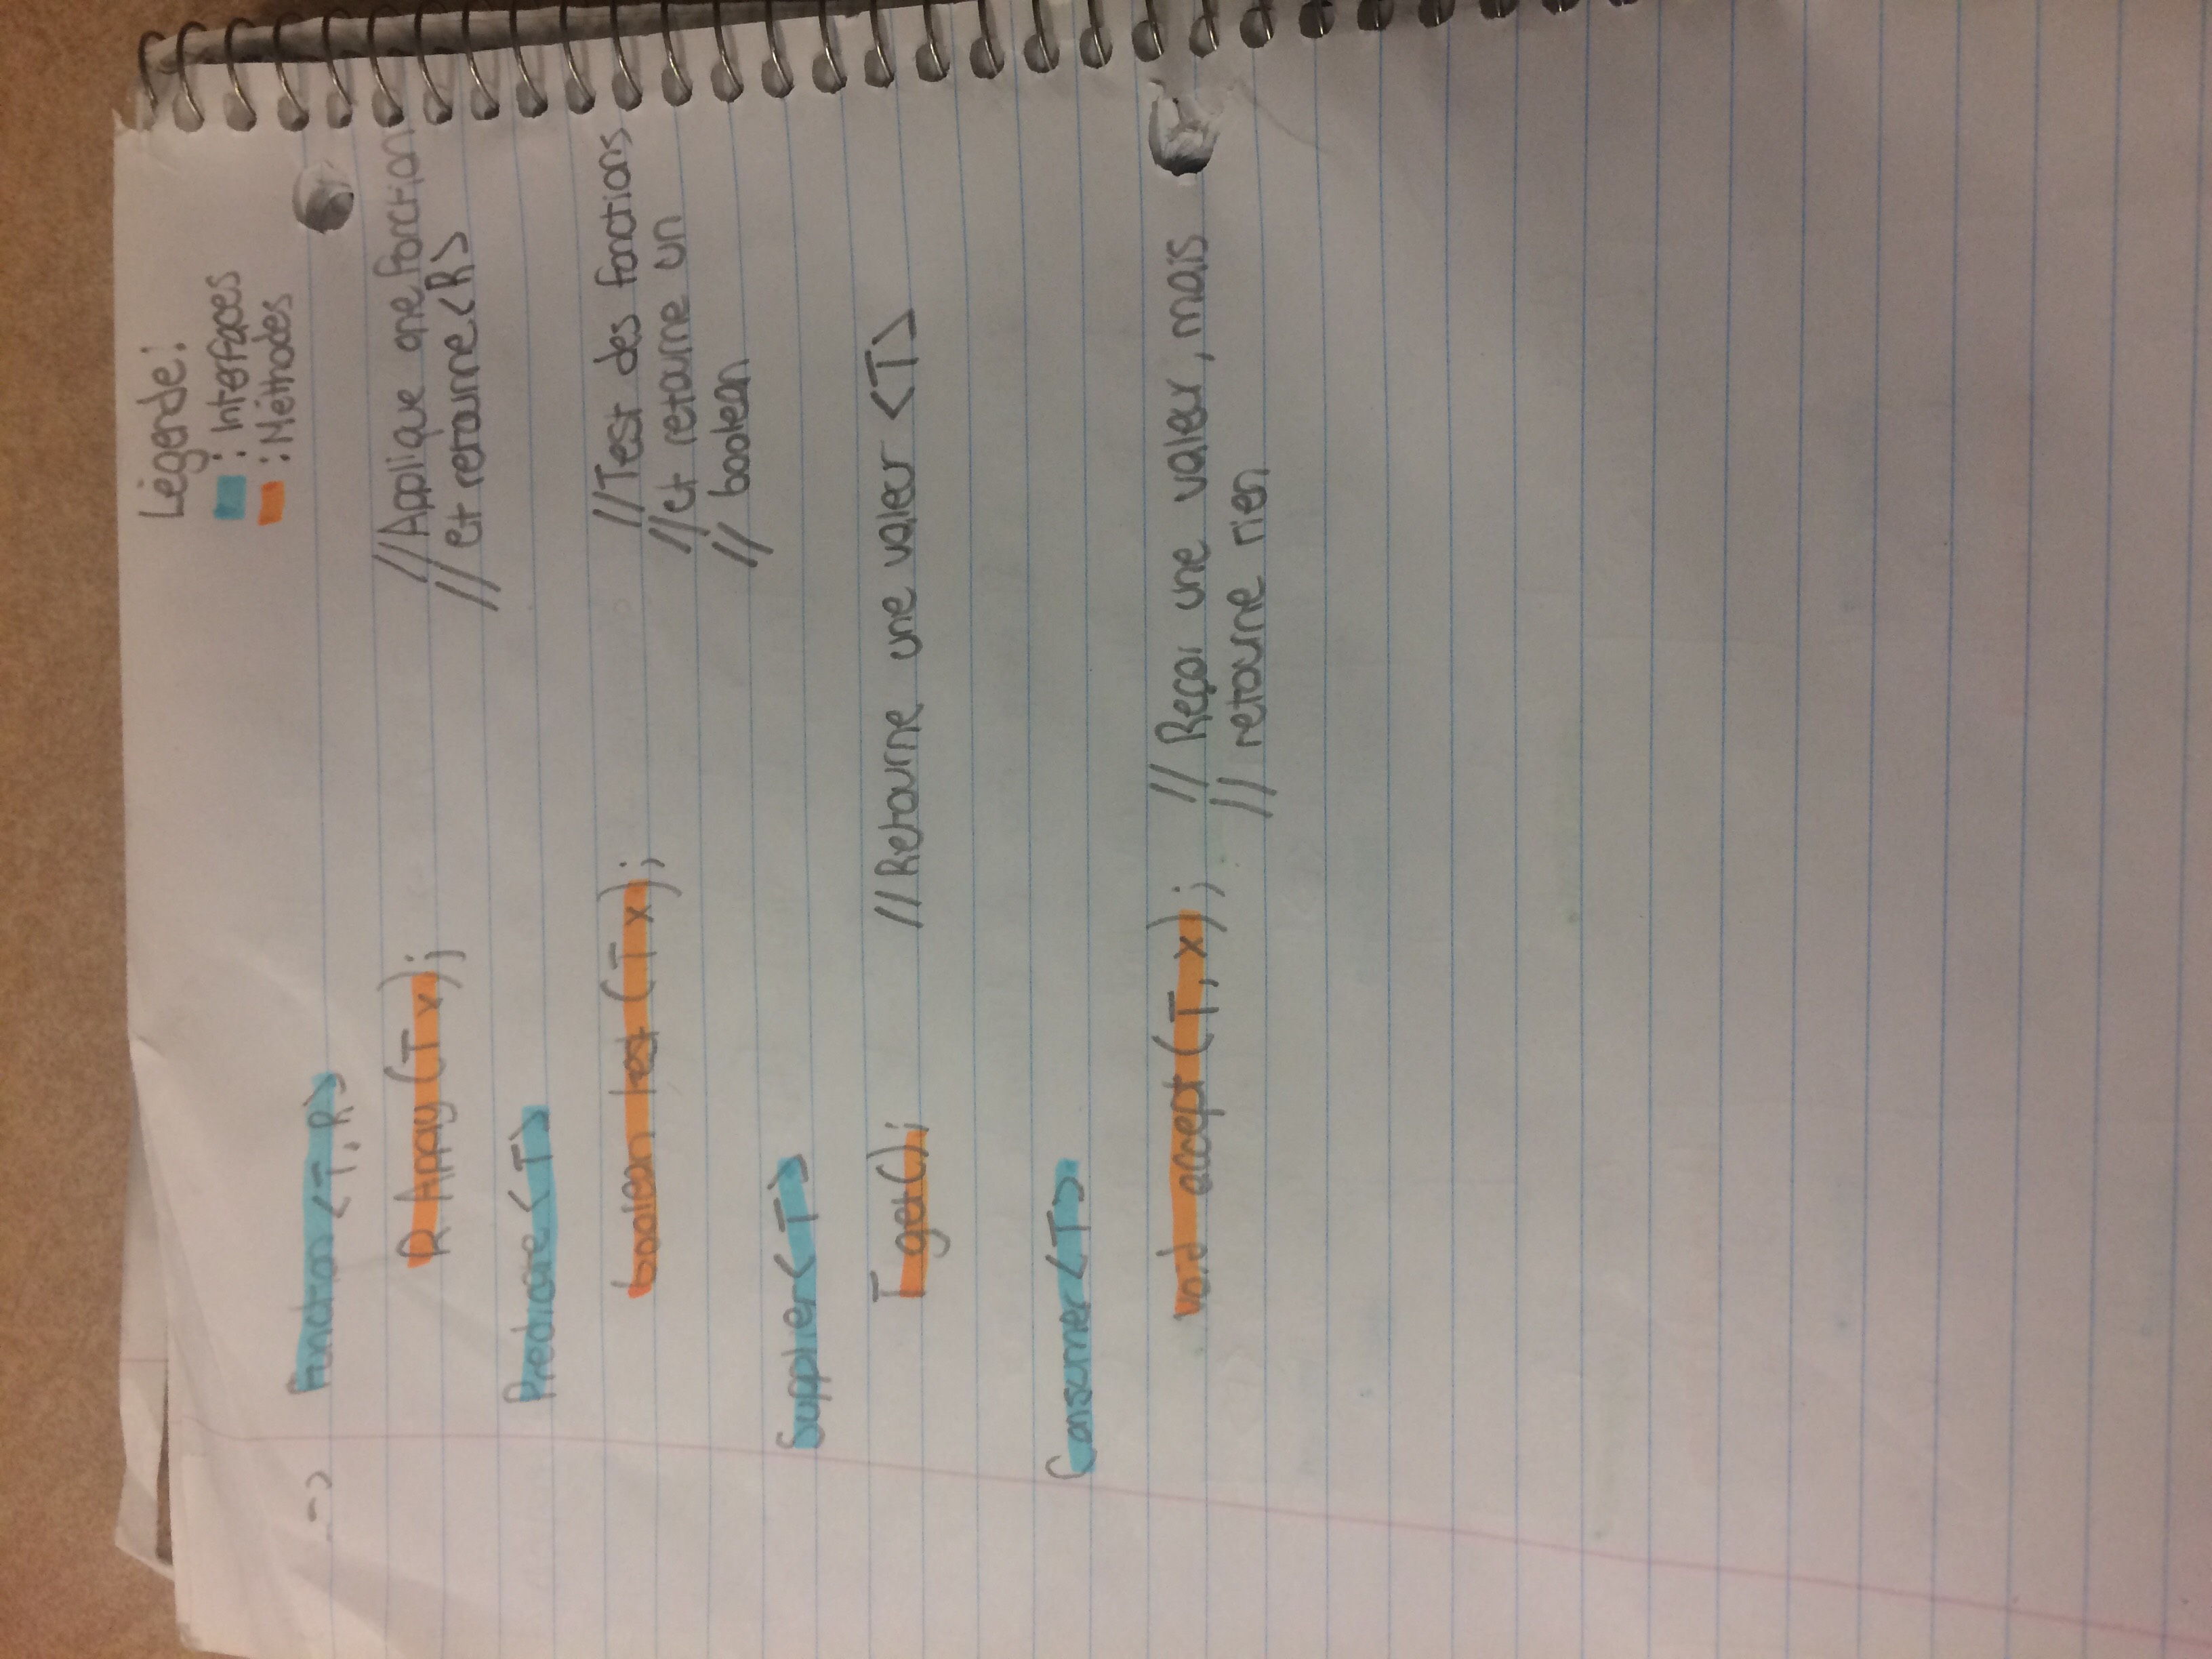 Légende:
: Interfaces
: Méthodes
--> Function <T, R>
R Array (T x); //Applique une fonction
// et retourne <R>
Predicate <T>
boolean test (T x); //Test des fonctions
//et retourne un
// boolean
Supplier <T>
T get(); //Retourne une valeur <T>
Consumer <T>
void accept (T, x); // Reçoi une valeur, mais
// retourne rien